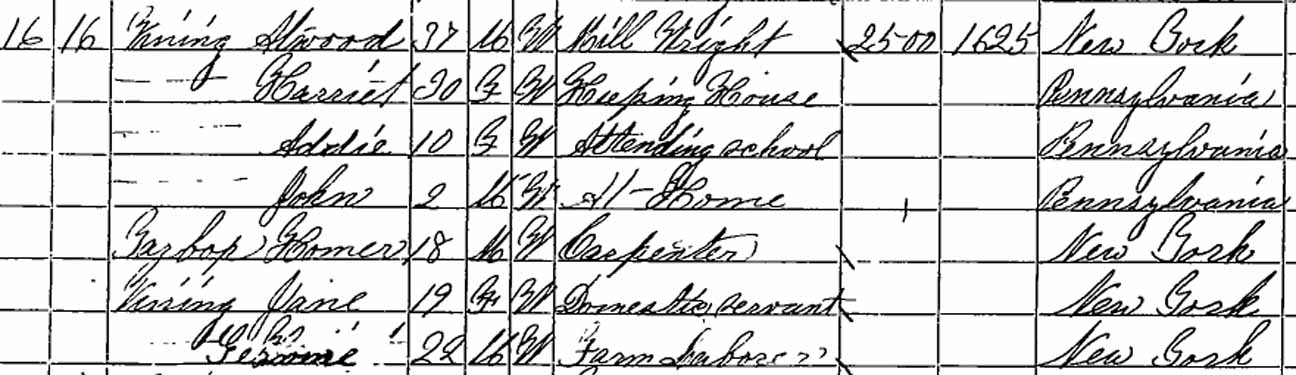 16 16 Vining Atwood 37 M W Mill Wright 2500 1625 New York
— — Harriet 30 F W Keeping House Pennsylvania
— — Addie 10 F W Attending school Pennsylvania
— — John 2 M W At Home Pennsylvania
Homer 18 M W Carpenter New York
Vining Jane 19 F W Domestic servant New York
22 M W Farm Laborer New York